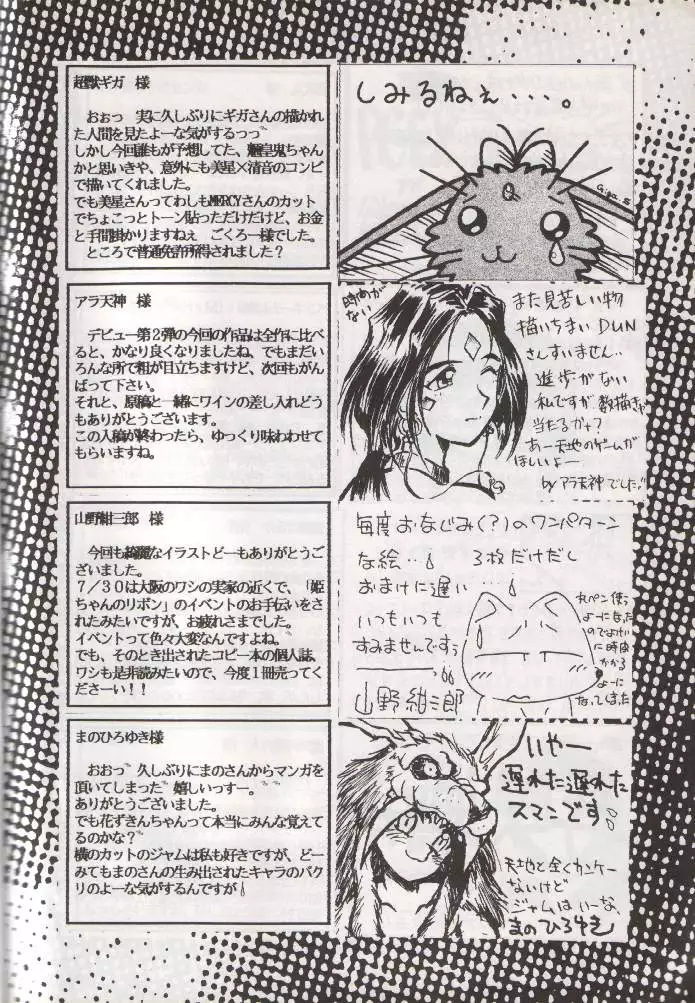 超獣ギガ 様
おぉっ 実に久しぶりにギガさんの描かれ
た人間を見たよーな気がするっっ゛
しかし今回誰もが予想してた、魎皇鬼ちゃん
かと思いきや、意外にも美星×清音のコンビ
で描いてくれました。
でも美星さんってわしもMERCYさんのカット
でちょこっとトーン貼っただけだけど、お金
と手間掛かりますねぇ ごくろー様でした。
ところで普通免許所得されました？
しみるねぇ・・・。
Giga S
アラ天神 様
デビュー第２弾の今回の作品は全作に比べ
ると、かなり良くなりましたね、でもまだい
ろんな所で粗が目立ちますけど、次回もがん
ばって下さい。
それと、原稿と一緒にワインの差し入れどう
もありがとうございます。
この入稿が終わったら、ゆっくり味わわせて
もらいますね。
時間が
ない
また見苦しい物
描いちまい DUN
さんすいません‥
進歩がない
私ですが数描きゃ
当たるかナ?
あー天地のゲームが
ほしいよー
by アラ天神でした。
山野紺三郎 様
今回も綺麗なイラストどーもありがとうご
ざいました。
７／３０は大阪のワシの実家の近くで、「姫
ちゃんのリボン」のイベントのお手伝いをさ
れたみたいですが、お疲れさまでした。
イベントって色々大変なんですよね。
でも、そのとき出されたコピー本の個人誌、
ワシも是非読みたいので、今度１冊売ってく
ださーい！！
毎度おなじみ(?)のワンパターン
な絵・・ 3枚だけだし
おまけに遅い…
いつもいつも
すみませんですぅ
山野紺三郎
丸ペン使う
よーになった
のでよけい
に時間
かかる
よーに
なってしまった
まのひろゆき様
おおっ゛久しぶりにまのさんからマンガを
頂いてしまった゛嬉しいっすー。
ありがとうございました。
でも花ずきんちゃんって本当にみんな覚えて
るのかな？
横のカットのジャムは私も好きですが、どー
みてもまのさんの生み出されたキャラのパク
リのよーな気がするんですが
いやー
遅れた遅れた
スマンです
天地と全くカンケー
ないけど
ジャムはいーな
まのひろゆき